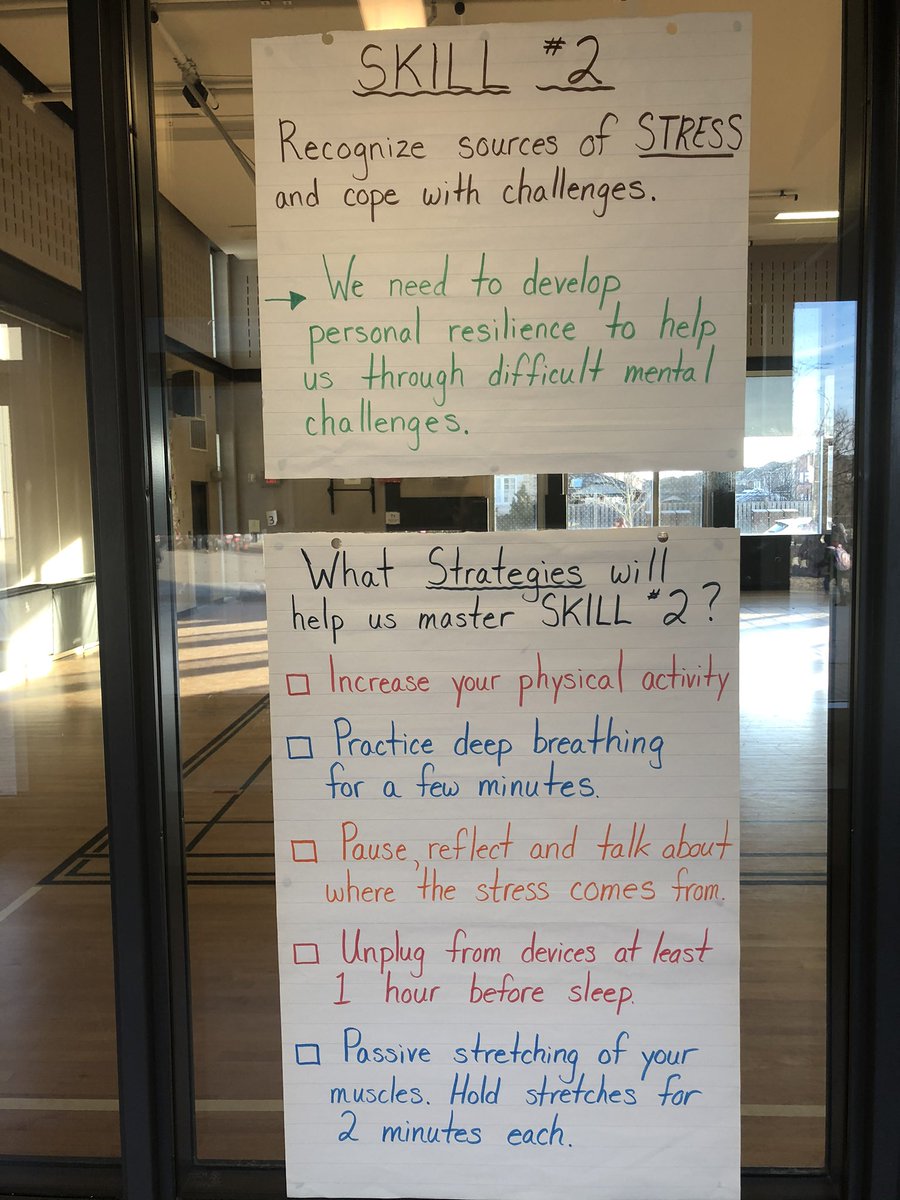 SKILL #2
Recognize sources of STRESS
and cope with challenges.
→ We need to develop
personal resilience to help
us through difficult mental
challenges.
What Strategies will
help us master SKILL #2?
☐ Increase your physical activity
☐ Practice deep breathing
for a few minutes.
☐ Pause, reflect and talk about
where the stress comes from.
☐ Unplug from devices at least
1 hour before sleep.
☐ Passive stretching of your
muscles. Hold stretches for
2 minutes each.